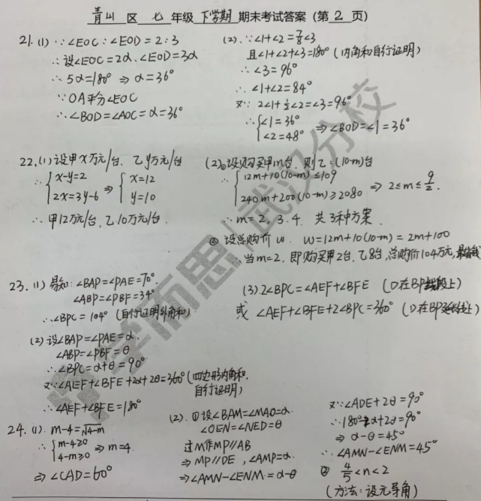 青山 区 七 年级 下学期 期末考试答案（第 2 页）
21.(1) ∵∠EOC:∠EOD=2:3
∴设∠EOC=2α.∠EOD=3α
∴5α=180° ⇒ α=36°
∵OA平分∠EOC
∴∠BOD=∠AOC=α=36°
(2). ∵∠1+∠2=7/8∠3
且∠1+∠2+∠3=180°(内角和自行证明)
∴∠3=96°
∴∠1+∠2=84°
又∵ 2∠1+1/2∠2=∠3=96°
∴{∠1=36°
∠2=48° ⇒∠BOD=∠1=36°
22.(1)设甲x万元/台.乙y万元/台
∴{x-y=2
2x=3y-6 ⇒ {x=12
y=10
∴甲12万元/台.乙10万元/台.
(2)①设购买甲m台.则乙(10-m)台
∴{12m+10(10-m)≤109
240m+200(10-m)≥2080 ⇒ 2≤m≤9/2.
∴m=2.3.4. 共3种方案.
②设总购价w. w=12m+10(10-m)=2m+100
∴当m=2.即购买甲2台.乙8台.总购价104万元.
23. (1) ∠BAP=∠PAE=70°
∠ABP=∠PBF=34°
∴∠BPC=104°(自行证明外角和)
(2)设∠BAP=∠PAE=α.
∠ABP=∠PBF=θ
∴∠BPC=α+θ=90°
又∵∠AEF+∠BFE+2α+2θ=360°(四边形内角和.
自行证明)
∴∠AEF+∠BFE=180°
(3) 2∠BPC=∠AEF+∠BFE (D在BP线段上)
或 ∠AEF+∠BFE+2∠BPC=360° (D在BP延长线上)
24. (1). m-4=√4-m
∴{m-4≥0
4-m≥0 ⇒ m=4.
⇒ ∠CAD=60°
(2). ①设∠BAM=∠MAD=α.
∠DEN=∠NED=θ
过M作MP∥AB
⇒ MP∥DE,∠AMP=α.
⇒∠AMN-∠ENM=α-θ
又∵∠ADE+2θ=90°
∴180°-2α+2θ=90°
⇒ α-θ=45°
∴∠AMN-∠ENM=45°
② 4/5<n<2
(方法:设元导角)
学而思武汉分校